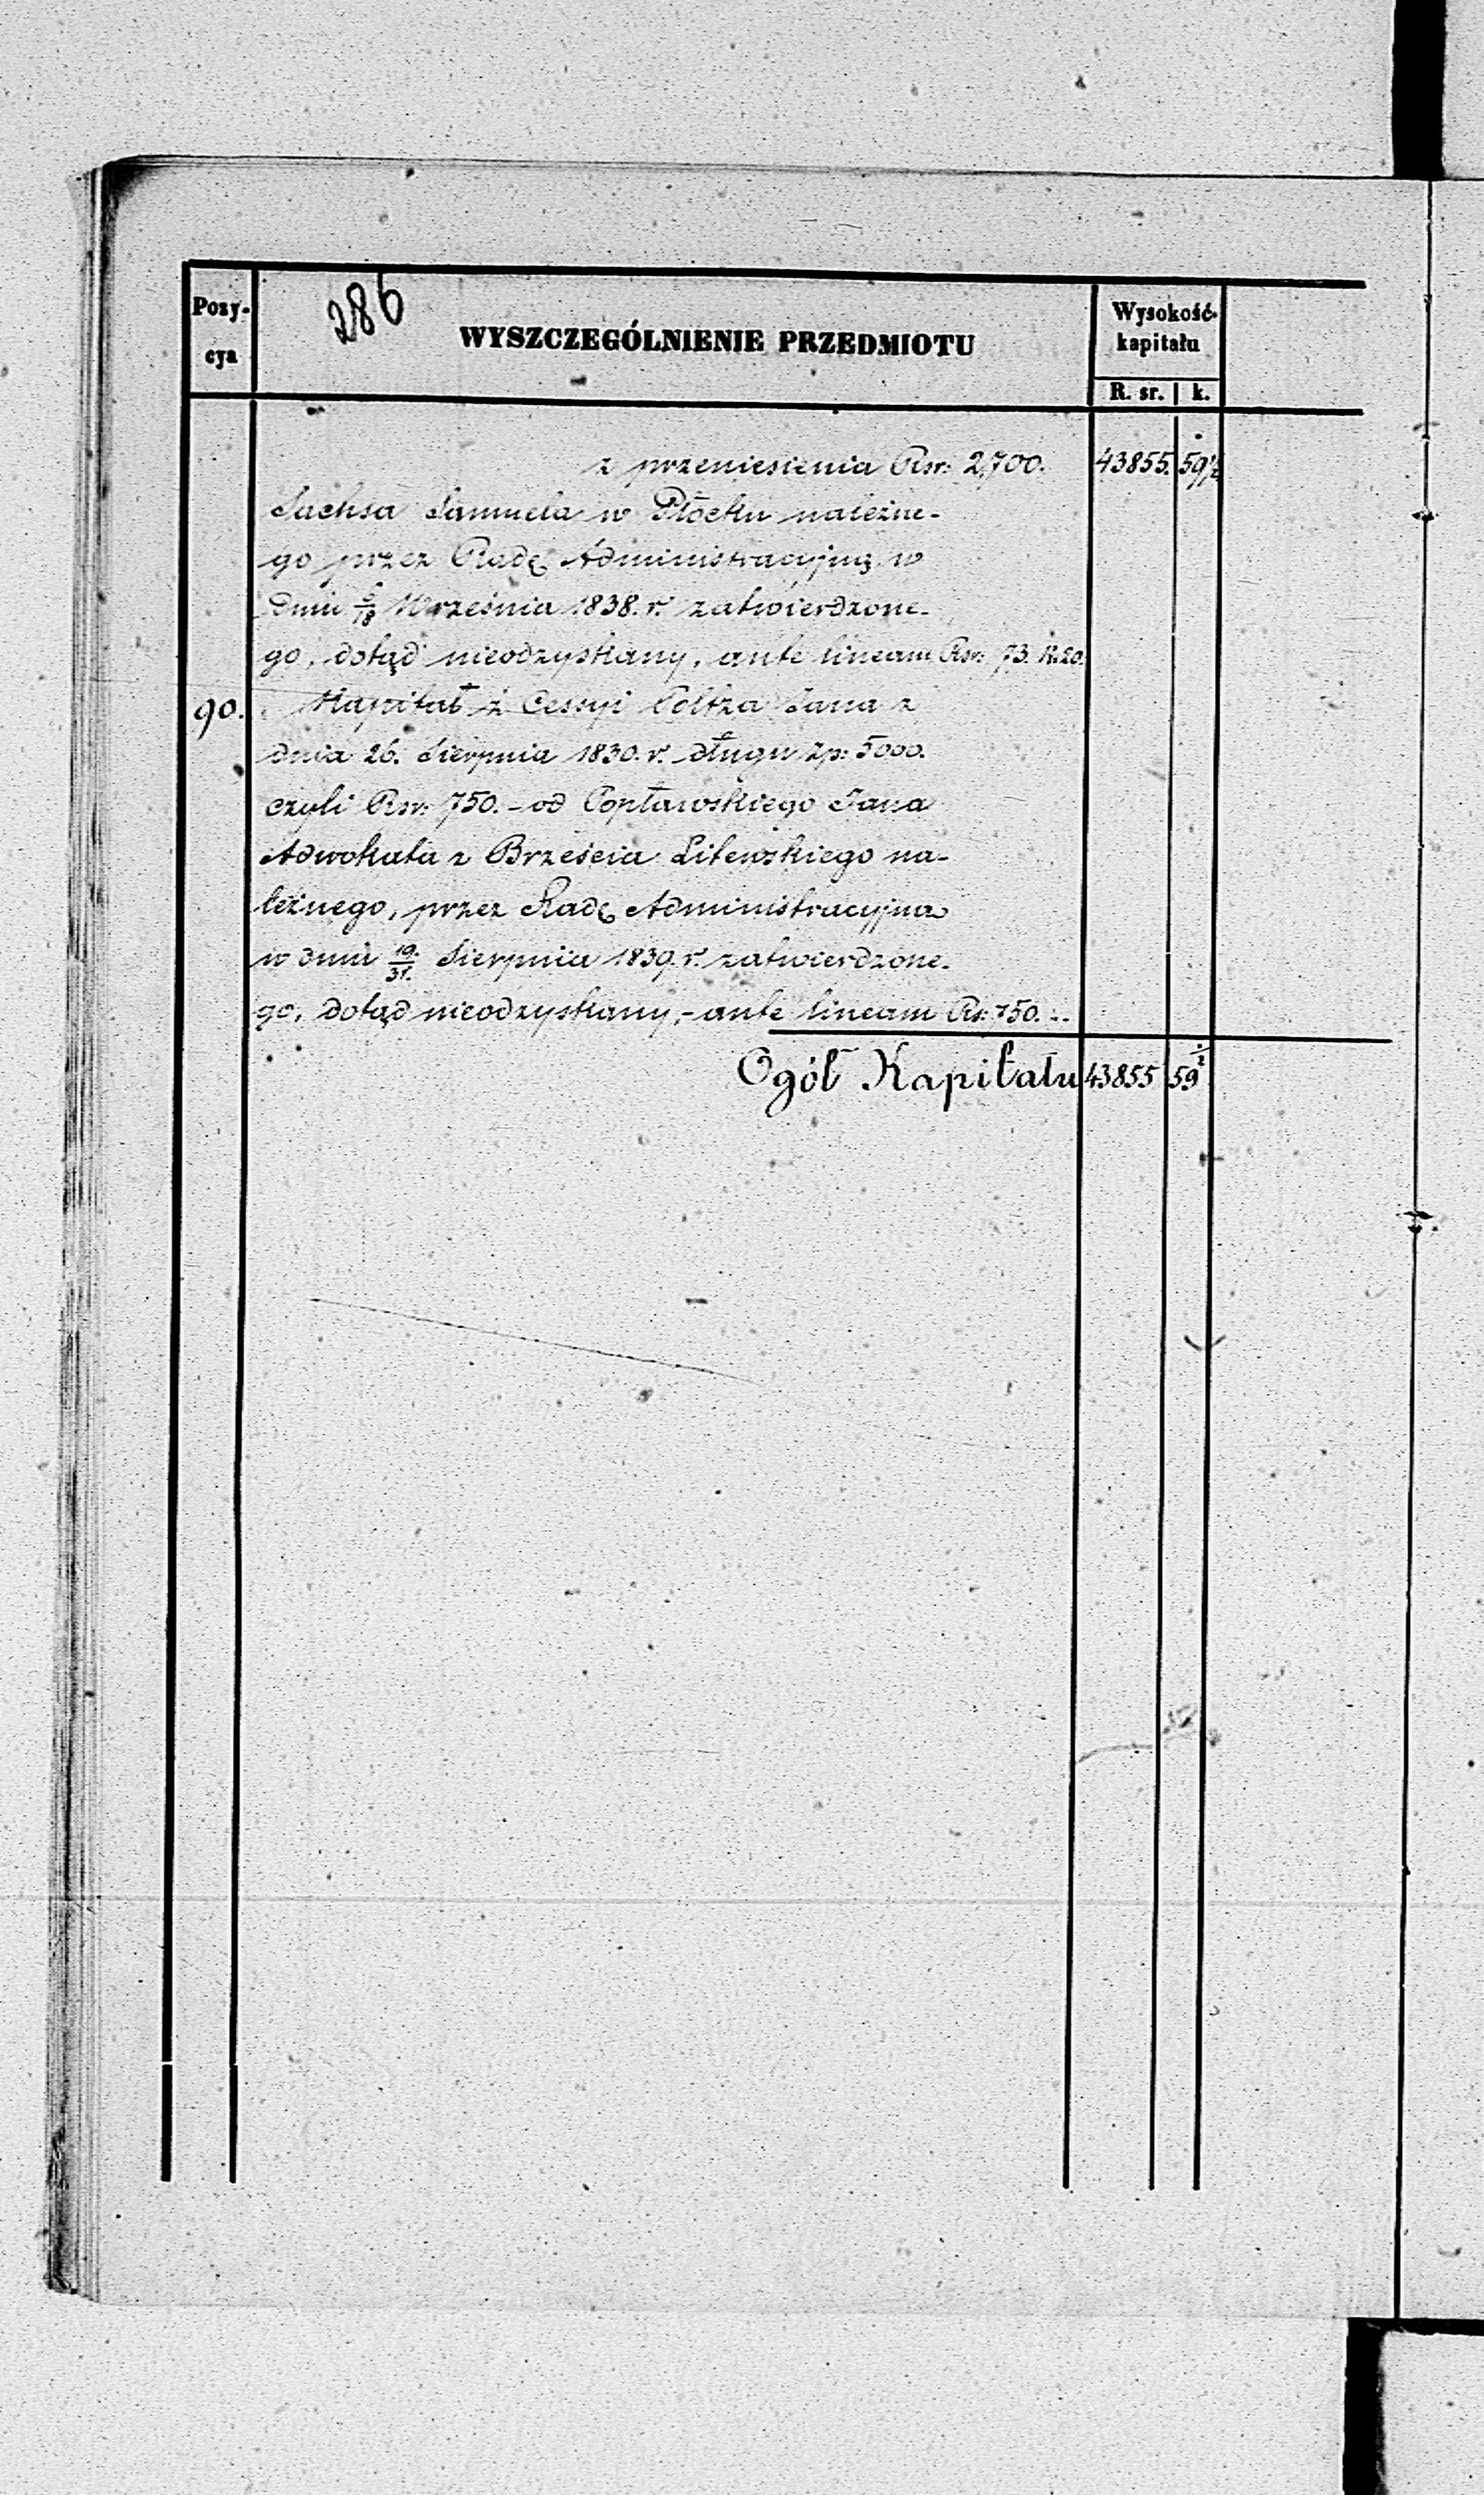 286
Pozy-
cya
WYSZCZEGÓLNIENIE PRZEDMIOTU
Wysokość
kapitału
R. sr. k.
z przeniesienia Rsr: 2,700. 43855. 59½
Sachsa Samuela w Płocku należne-
go przez Radę Administracyjną w
dniu 6/18 Września 1838. r. zatwierdzone-
go, dotąd nieodzyskany, ante lineam Rsr: 73. k. 20.
90. Kapitał z Cessyi Poltza Jana z
dnia 26. Sierpnia 1830. r. długu zp: 5000.
czyli Rsr: 750. - od Popławskiego Jana
Adwokata z Brześcia Litewskiego na-
leżnego, przez Radę Administracyjną
w dniu 19/31. Sierpnia 1839. r. zatwierdzone-
go, dotąd nieodzyskany, - ante lineam Rs: 750. -
Ogół Kapitału 43855 59½